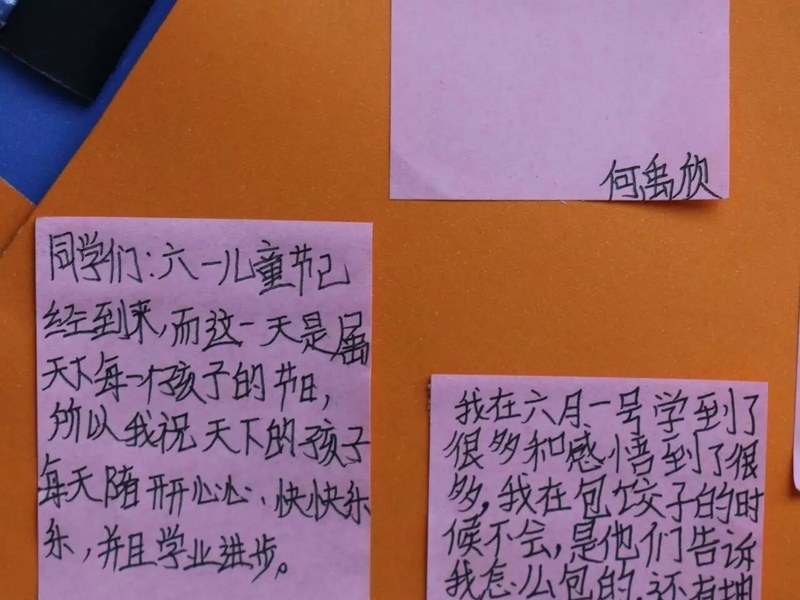 何禹欣
同学们：六一儿童节已
经到来，而这一天是属
天下每一个孩子的节日，
所以我祝天下的孩子
每天陪开开心心、快快乐
乐，并且学业进步。
我在六月一号学到了
很多和感悟到了很
多，我在包饺子的时
候不会，是他们告诉
我怎么包的，还有